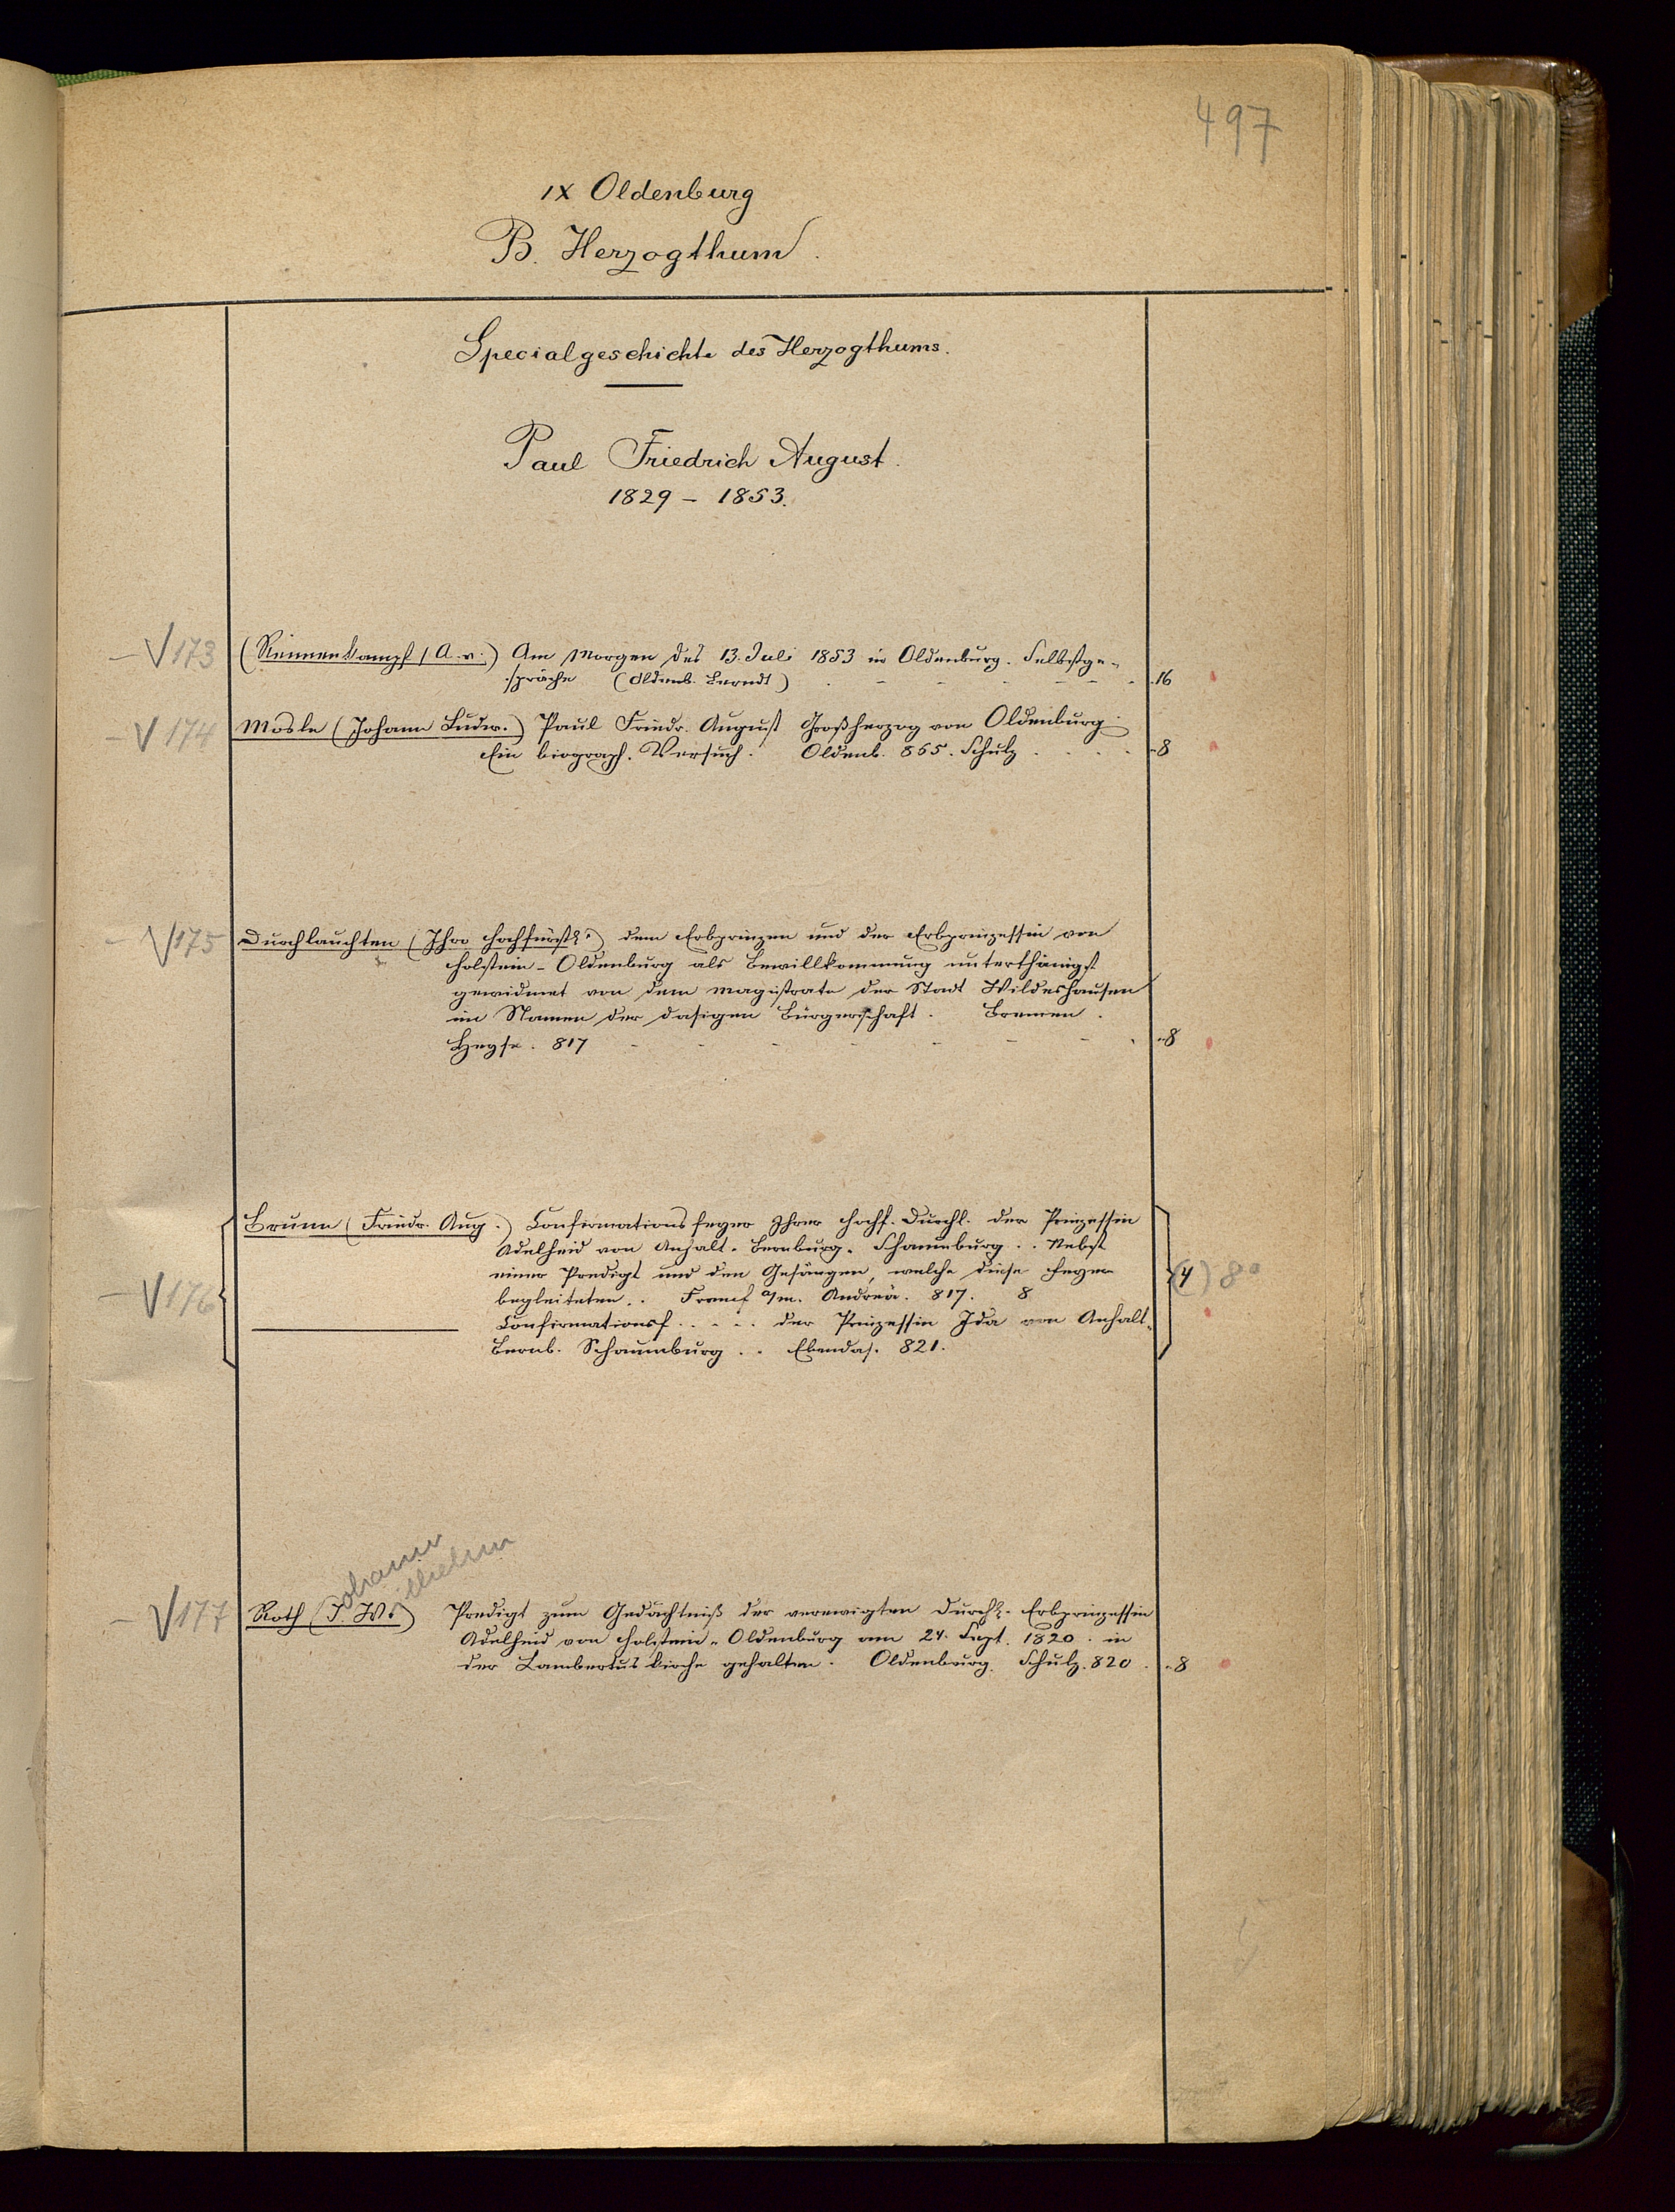 497
IX Oldenburg
B. Herzogthum.
Specialgeschichte des Herzogthums.
Paul Friedrich August.
1829 – 1853.
– V 173 (Rennenkampf (A. v.) Am Morgen des 13. Juli 1853 in Oldenburg. Selbstge-
spräche (Oldenb. Berndt) 16
– V 174 Mosle (Johann Ludw.) Paul Friedr. August Großherzog von Oldenburg.
Ein biograph. Versuch. Oldenb. 865. Schulz 8
– V 175 Durchlauchten (Ihro hochfürstl.) dem Erbprinzen und der Erbprinzessin von
Holstein-Oldenburg als Bewillkommnung unterthänigst
gewidmet von dem Magistrate der Stadt Wildeshausen
im Namen der dasigen Bürgerschaft. Bremen.
Heyse. 817 8
Brunn (Friedr. Aug.) Confirmationsfeyer Ihrer Hochf. Durchl. der Prinzessin
Adelheid von Anhalt-Bernburg-Schaumburg .. Nebst
einer Predigt und den Gesängen, welche diese Feyer
– V 176 begleiteten .. Francf a/m. Andreä. 817. 8 (4) 8°
——— Confirmationsf. .... der Prinzessin Ida von Anhalt-
Bernb. Schaumburg .. Ebendas. 821.
Johann
Wilhelm
– V 177 Roth (J. W.) Predigt zum Gedächtniß der verewigten Durchl. Erbprinzessin
Adelheid von Holstein-Oldenburg am 24. Sept. 1820. in
der Lambertus kirche gehalten. Oldenburg. Schulz. 820. 8